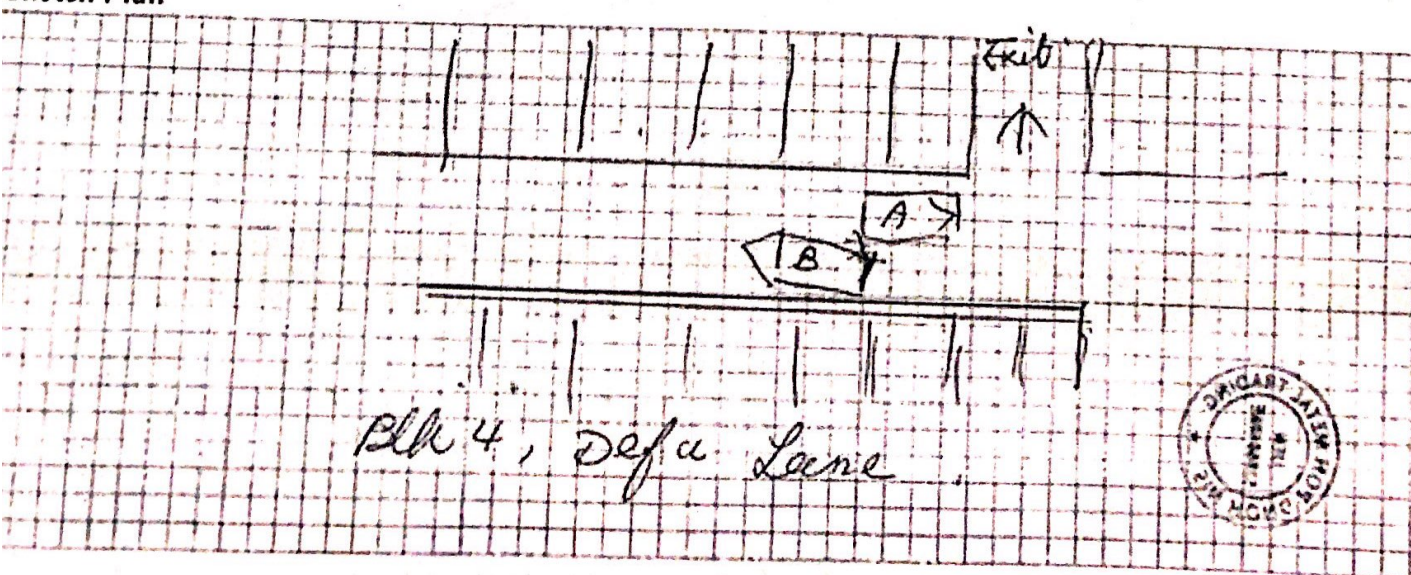 Exit
A
B
Blk 4, Defu Lane
SIN HOCK POH METAL TRADING